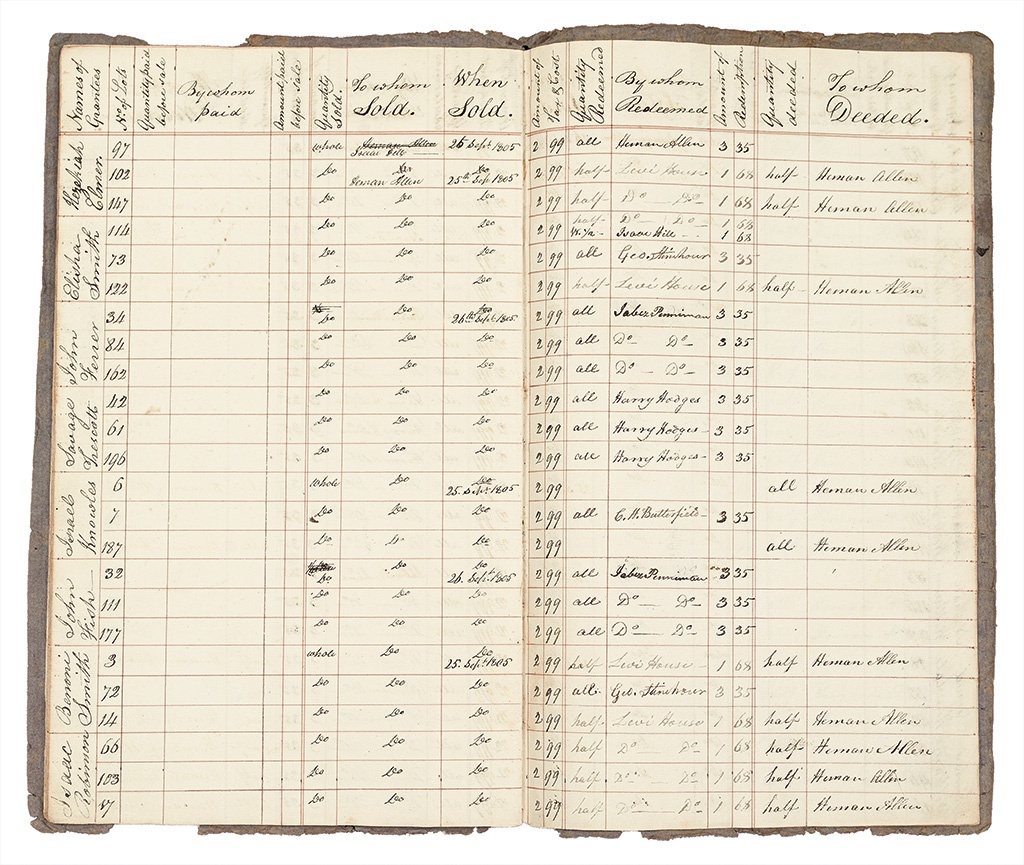 Names of Grantees | No of Lots | Quantity paid before sale | By whom paid | Amount paid before sale | Quantity Sold. | To whom Sold. | When Sold. | Amount of Tax & Cost | Quantity Redeemed | By whom Redeemed | Amount of Redemption | Quantity deeded | To whom Deeded.
Hezekiah Elmer | 97 | whole | Heman Allen Isaac Hill | 25 Sept. 1805 | 2 99 | all | Heman Allen | 3 35
102 | Do | Do Heman Allen | Do 25th Sept 1805 | 2 99 | half | Levi House | 1 68 | half | Heman Allen
147 | Do | Do | Do | 2 99 | half | Do Do | 1 68 | half | Heman Allen
Elisha Smith | 114 | Do | Do | Do | 2 99 | half | Do Do | 1 68
Isaac Hill | 1 68
73 | Do | Do | Do | 2 99 | all | Geo. Stinhour | 3 35
122 | Do | Do | Do | 2 99 | half | Levi House | 1 68 | half | Heman Allen
John Ferrer | 34 | Do | Do | Do 26th Sept. 1805 | 2 99 | all | Jabez Penniman | 3 35
84 | Do | Do | Do | 2 99 | all | Do Do | 3 35
162 | Do | Do | Do | 2 99 | all | Do Do | 3 35
Savage Trescott | 42 | Do | Do | Do | 2 99 | all | Harry Hodges | 3 35
61 | Do | Do | Do | 2 99 | all | Harry Hodges | 3 35
196 | Do | Do | Do | 2 99 | all | Harry Hodges | 3 35
Israel Knowles | 6 | whole | Do | Do 25. Sept. 1805 | 2 99 | all | Heman Allen
7 | Do | Do | Do | 2 99 | all | C. H. Butterfield | 3 35
187 | Do | Do | Do | 2 99 | all | Heman Allen
John Fish | 32 | Do | Do | Do 26. Sept 1805 | 2 99 | all | Jabez Penniman | 3 35
111 | Do | Do | Do | 2 99 | all | Do Do | 3 35
177 | Do | Do | Do | 2 99 | all | Do Do | 3 35
Benoni Smith | 3 | whole | Do | Do 25. Sept 1805 | 2 99 | half | Levi House | 1 68 | half | Heman Allen
72 | Do | Do | Do | 2 99 | all | Geo. Stinhour | 3 35
14 | Do | Do | Do | 2 99 | half | Levi House | 1 68 | half | Heman Allen
Isaac Robinson | 66 | Do | Do | Do | 2 99 | half | Do Do | 1 68 | half | Heman Allen
123 | Do | Do | Do | 2 99 | half | Do Do | 1 68 | half | Heman Allen
17 | Do | Do | Do | 2 99 | half | Do Do | 1 68 | half | Heman Allen